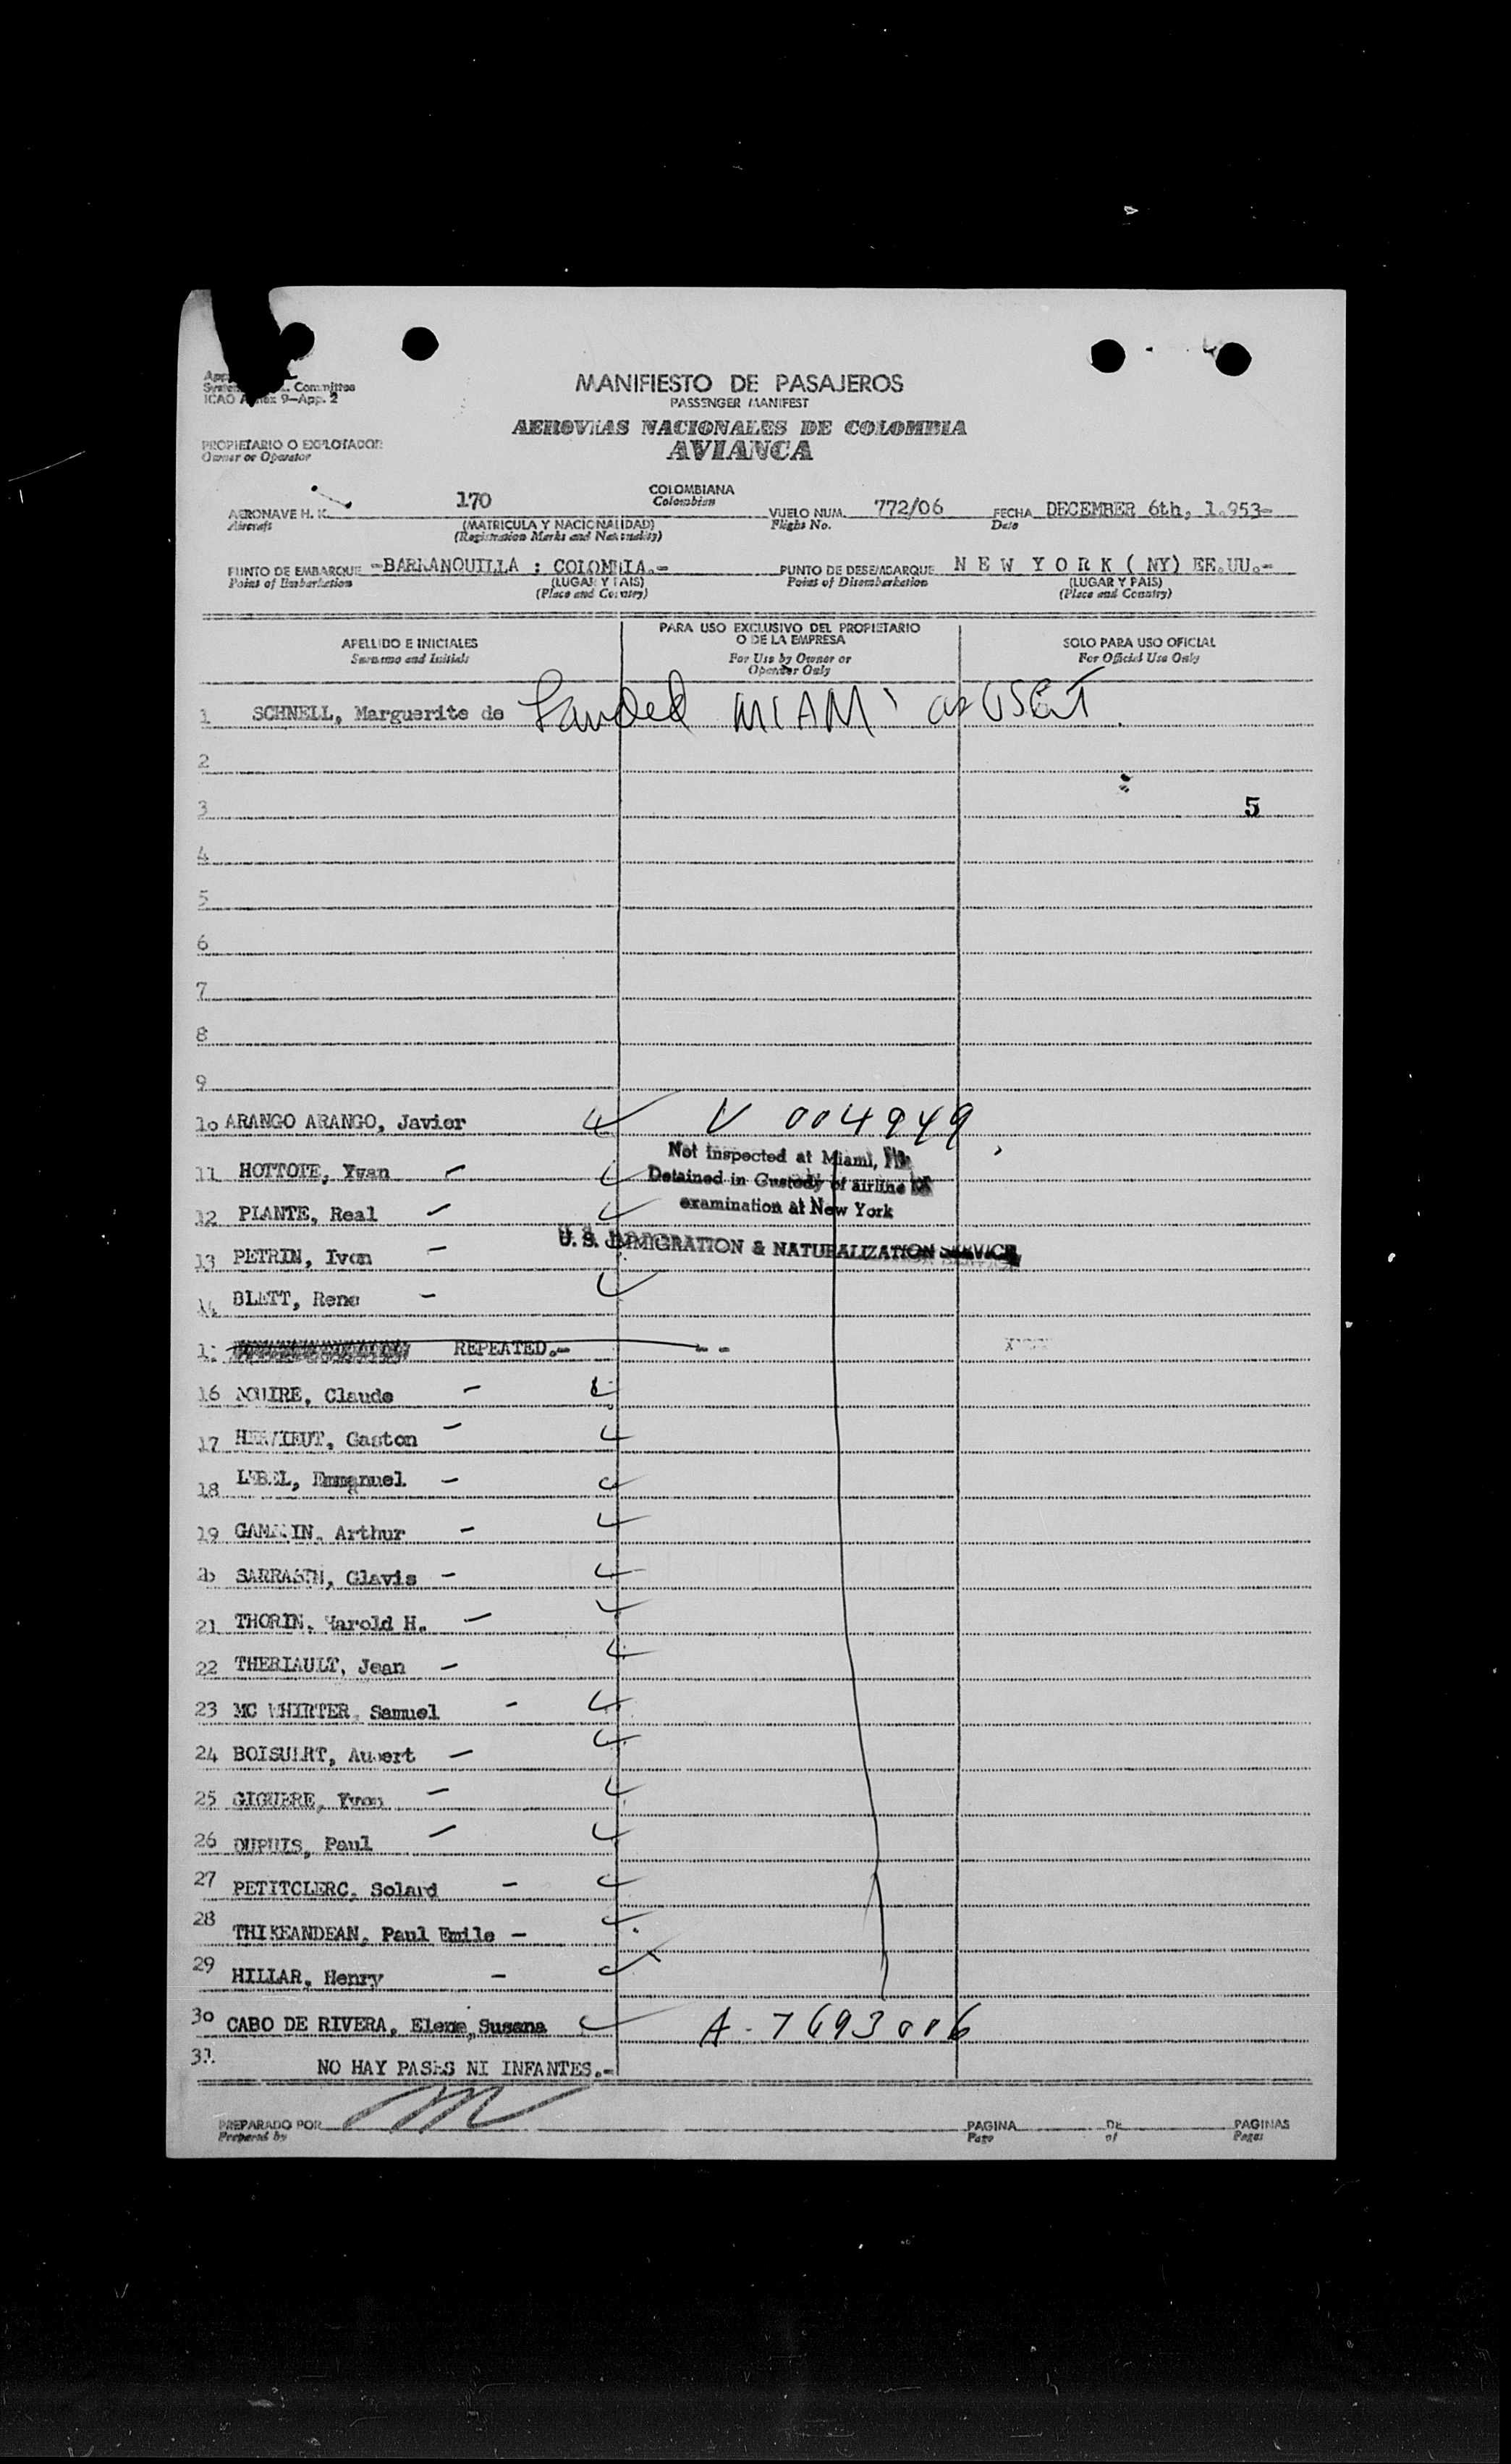 Committee
ICAO Annex 9-App. 2
MANIFIESTO DE PASAJEROS
PASSENGER MANIFEST
AEROVIAS NACIONALES DE COLOMBIA
AVIANCA
PROPIETARIO O EXPLOTADOR
Owner or Operator
AERONAVE H. K. 170 COLOMBIANA VUELO NUM. 772/06 FECHA DECEMBER 6th, 1.953-
Aircraft (MATRICULA Y NACIONALIDAD) Colombian Flight No. Date
(Registration Marks and Nationality)
PUNTO DE EMBARQUE -BARRANQUILLA : COLOMBIA.- PUNTO DE DESEMBARQUE N E W Y O R K ( NY) EE.UU.-
Point of Embarkation (LUGAR Y PAIS) Point of Disembarkation (LUGAR Y PAIS)
(Place and Country) (Place and Country)
APELLIDO E INICIALES PARA USO EXCLUSIVO DEL PROPIETARIO O DE LA EMPRESA SOLO PARA USO OFICIAL
Surname and Initials For Use by Owner or Operator Only For Official Use Only
1 SCHNELL, Marguerite de Landed MIAMI
2
3 5
4
5
6
7
8
9
10 ARANGO ARANGO, Javier V 004949
Not inspected at Miami, Fla.
11 HOTTOTE, Yvan -
Detained in Custody of airline
12 PLANTE, Real -
examination at New York
U. S. IMMIGRATION & NATURALIZATION SERVICE
13 PETRIN, Ivon -
14 BLETT, Rene -
REPEATED.- - -
16 Claude -
17 Gaston -
18 LEBEL, Emmanuel -
19 Arthur -
20 SARRASIN, Glavis -
21 THORIN, Harold H. -
22 THERIAULT, Jean -
23 MC WHIRTER, Samuel -
24 BOISUERT, Aubert -
25 GIGUERE, Yvon -
26 DUPUIS, Paul -
27 PETITCLERC, Solard -
28 Paul Emile -
29 HILLAR, Henry -
30 CABO DE RIVERA, Elena, Susana A-7693006
31 NO HAY PASES NI INFANTES.-
PREPARADO POR PAGINA DE PAGINAS
Prepared by Page of Pages